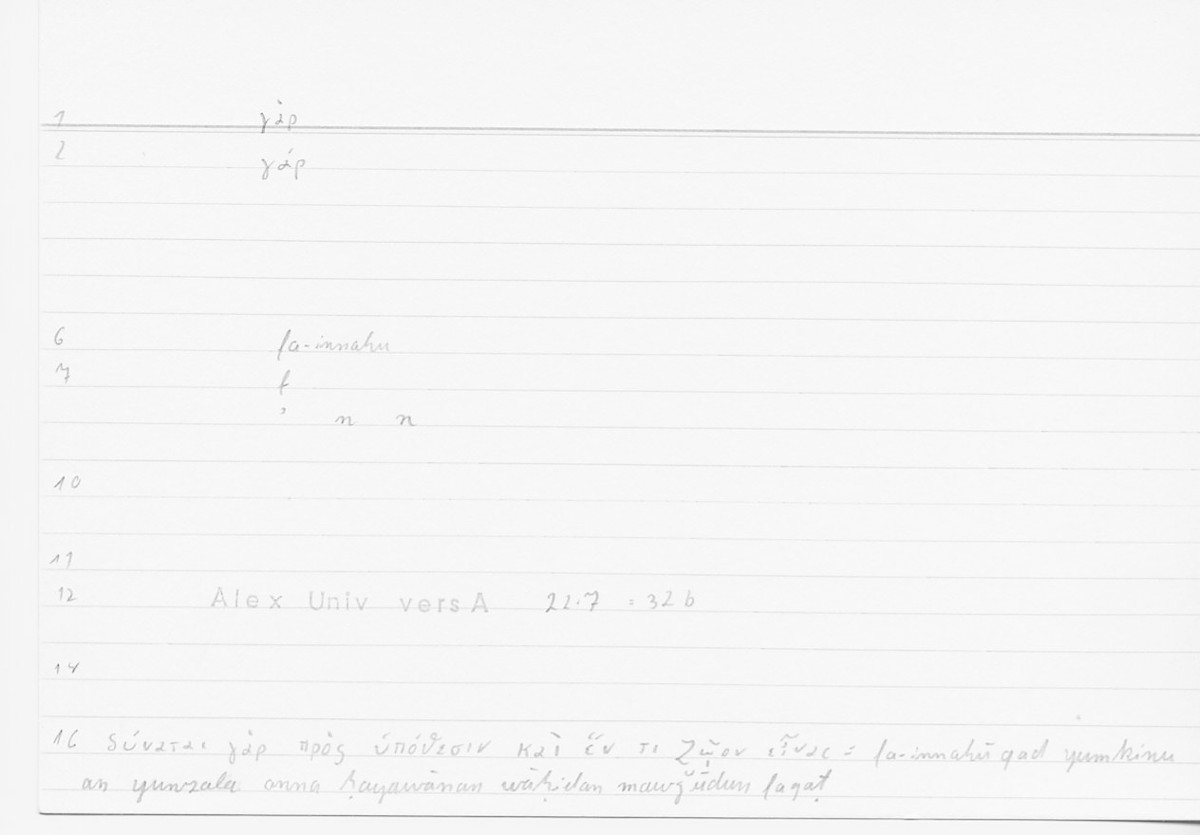 1 γὰρ
2 γάρ
6 fa-innahu
7 f
ʾ n n
10
11
12 Alex Univ vers A 22.7 = 32 b
14
16 δύναται γὰρ πρὸς ὑπόθεσιν καὶ ἕν τι ζῷον εἶναι = fa-innahū qad yumkinu
an yunzala anna ḥayawānan wāḥidan mawǧūdun faqaṭ